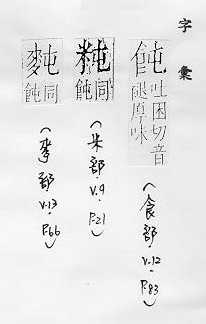 字彙
飩
吐困切音
厚味
(食部 v.12 P.83)
同
飩
(米部 v.9 P.21)
同
飩
(麥部 v.13 P.66)